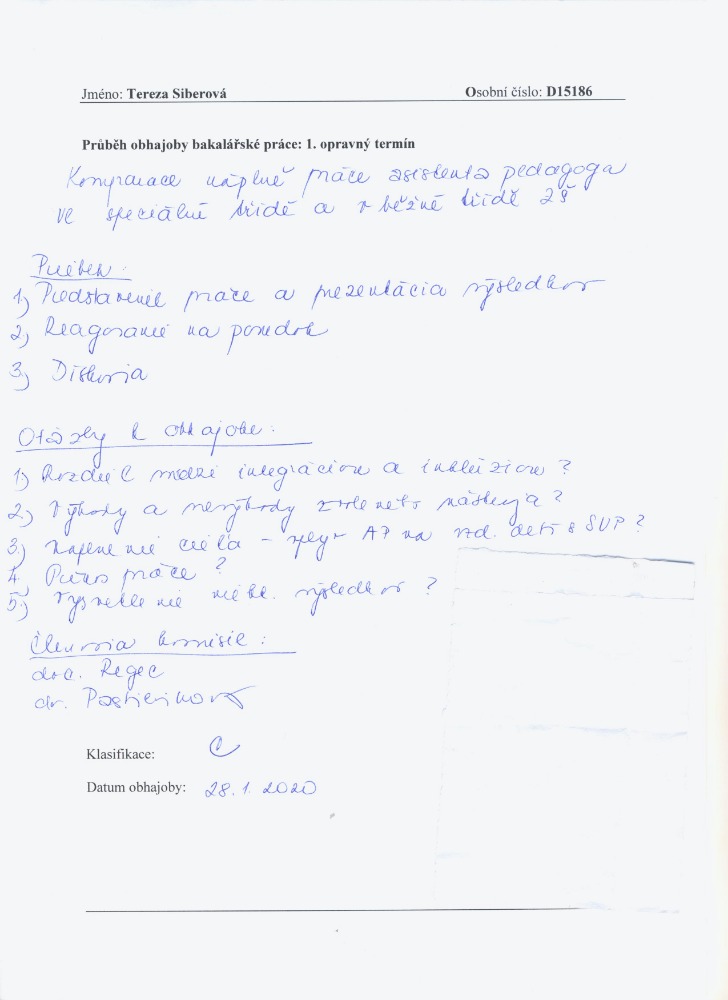 Jméno: Tereza Siberová Osobní číslo: D15186
Průběh obhajoby bakalářské práce: 1. opravný termín
Komparace náplně práce asistenta pedagoga
ve speciální třídě a v běžné třídě ZŠ
Priebeh:
1) Predstavenie práce a prezentácia výsledkov
2) Reagovanie na posudok
3) Diskusia
Otázky k obhajobe:
1) Rozdiel medzi integráciou a inklúziou ?
2) Výhody a nevýhody zvoleného nástroja ?
3) Naplnenie cieľa - vplyv AP na vzd. detí s ŠVP ?
4. Prínos práce ?
5) Vysvetlenie niekt. výsledkov ?
Členovia komisie:
doc. Regec
dr.
Klasifikace: C
Datum obhajoby: 28. 1. 2020